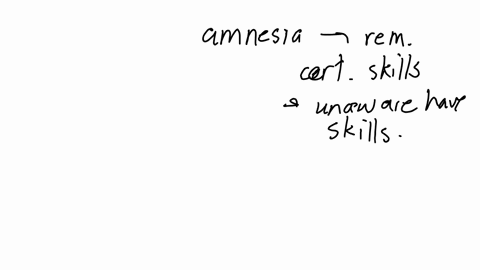 amnesia → rem.
cert. skills
→ unaware have
skills.